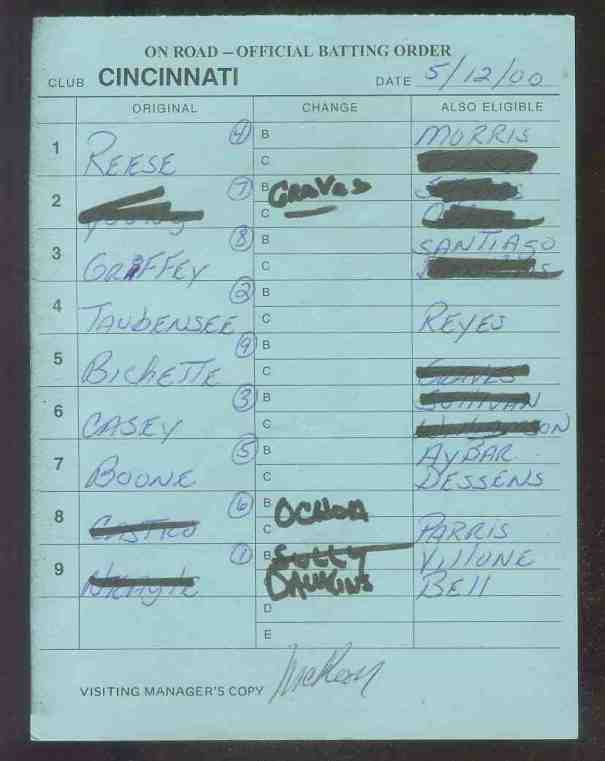 ON ROAD – OFFICIAL BATTING ORDER
CLUB CINCINNATI DATE 5/12/00
ORIGINAL CHANGE ALSO ELIGIBLE
1 REESE 4 B MORRIS
C
2 7 B Graves
C
3 GRIFFEY 8 B SANTIAGO
C
4 TAUBENSEE 2 B
C REYES
5 BICHETTE 9 B
C GRAVES
6 CASEY 3 B SULLIVAN
C
7 BOONE 5 B AYBAR
C DESSENS
8 CASTRO 6 B OCHOA
C PARRIS
9 1 B SULLY VILLONE
C DAWKINS BELL
D
E
VISITING MANAGER'S COPY McKeon